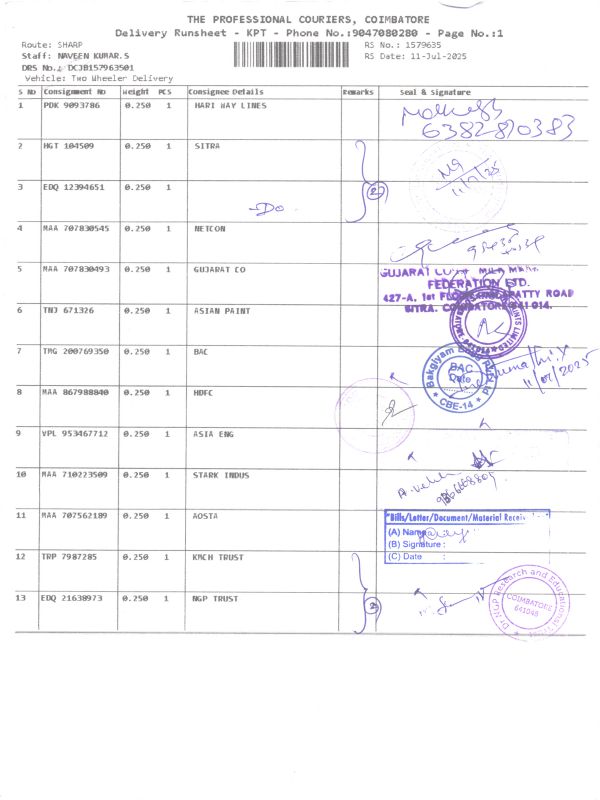 THE PROFESSIONAL COURIERS, COIMBATORE
Delivery Runsheet - KPT - Phone No.:9047080280 - Page No.:1
Route: SHARP
RS No.: 1579635
Staff: NAVEEN KUMAR.S
RS Date: 11-Jul-2025
DRS No.: DCJB157963501
Vehicle: Two Wheeler Delivery
S No Consignment No Weight PCS Consignee Details Remarks Seal & Signature
1 PDK 9093786 0.250 1 HARI WAY LINES
6382820383
2 HGT 104509 0.250 1 SITRA
11/7/25
3 EDQ 12394651 0.250 1
-Do- 2
4 MAA 707830545 0.250 1 NETCON
5 MAA 707830493 0.250 1 GUJARAT CO
GUJARAT
FEDERATION LTD.
427-A, 1st ROAD
SITRA, COIMBATORE-641 014.
6 TNJ 671326 0.250 1 ASIAN PAINT
7 TMG 200769350 0.250 1 BAC
BAC
Date
CBE-14
11/07/2025
8 MAA 867988840 0.250 1 HDFC
9 VPL 953467712 0.250 1 ASIA ENG
10 MAA 710223509 0.250 1 STARK INDUS
11 MAA 707562189 0.250 1 AOSTA
Bills/Letter/Document/Material Received
(A) Name
(B) Signature:
(C) Date :
12 TRP 7987285 0.250 1 KMCH TRUST
13 EDQ 21638973 0.250 1 NGP TRUST
2
Dr NGP Research and Educational
COIMBATORE
641048